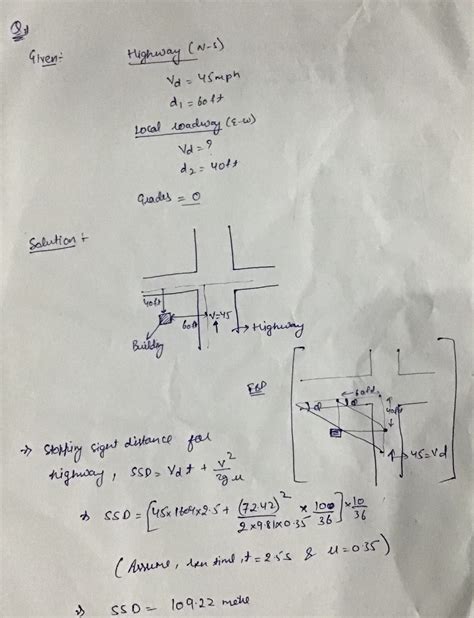 Q1
Given:-
Highway (N-S)
Vd = 45mph
d1 = 60ft
Local roadway (E-W)
Vd = ?
d2 = 40ft
Grades = 0
Solution :-
40ft
60ft
V=45
Highway
Building
FBD
60ft
θ
θ
40ft
45=Vd
⇒ Stopping sight distance for
highway, SSD = Vd t + V²/2gμ
⇒ SSD = [45×1.604×2.5 + (72.42)²/2×9.81×0.35 × 100/36] × 10/36
(Assume, time, t = 2.5s & μ = 0.35)
⇒ SSD = 109.22 metre